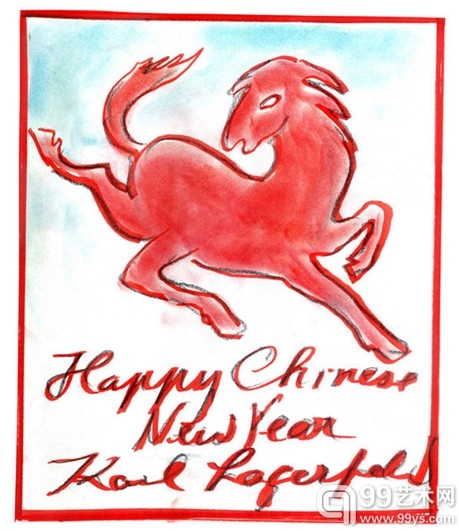 Happy Chinese
New Year
Karl Lagerfeld
99艺术网
www.99ys.com